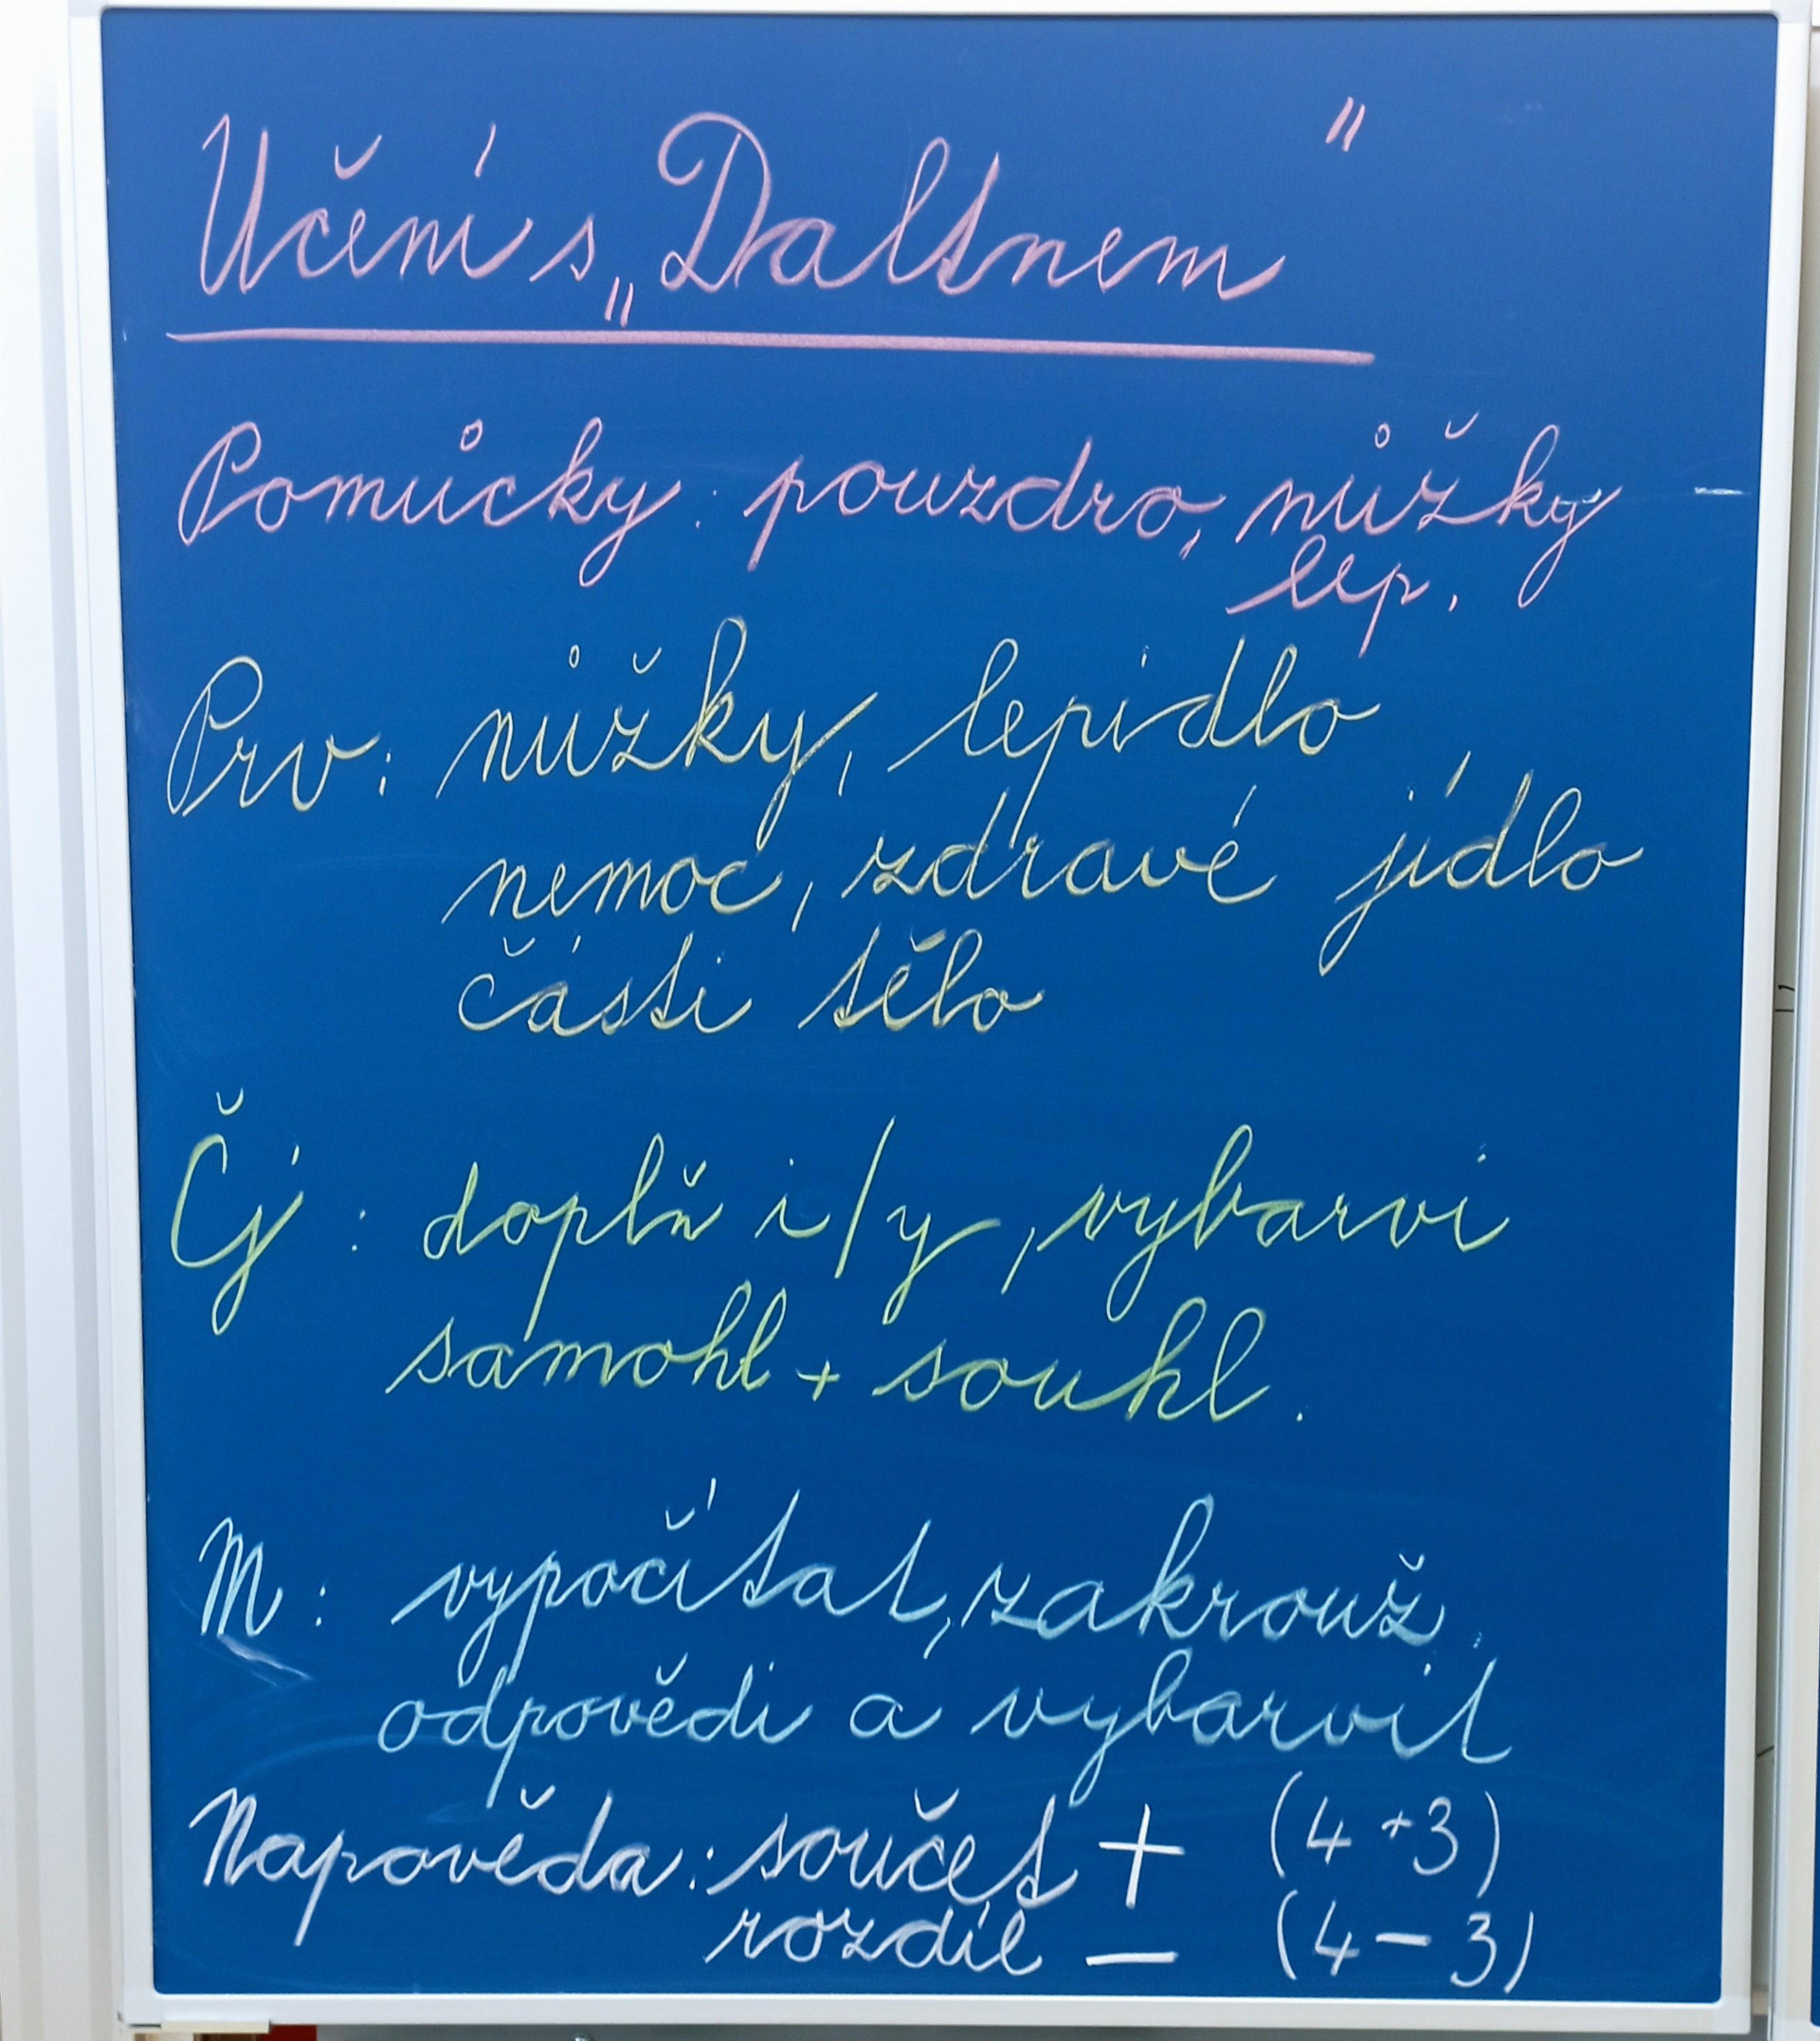 Učení s „Daltnem"
Pomůcky: pouzdro, nůžky
lep.
Prv: nůžky, lepidlo
nemoc, zdravé jídlo
části tělo
Čj: doplň i/y, vybarvi
samohl + souhl.
M: vypočítat, zakrouž.
odpovědi a vybarvit
Napověda: součet + (4+3)
rozdíl – (4–3)